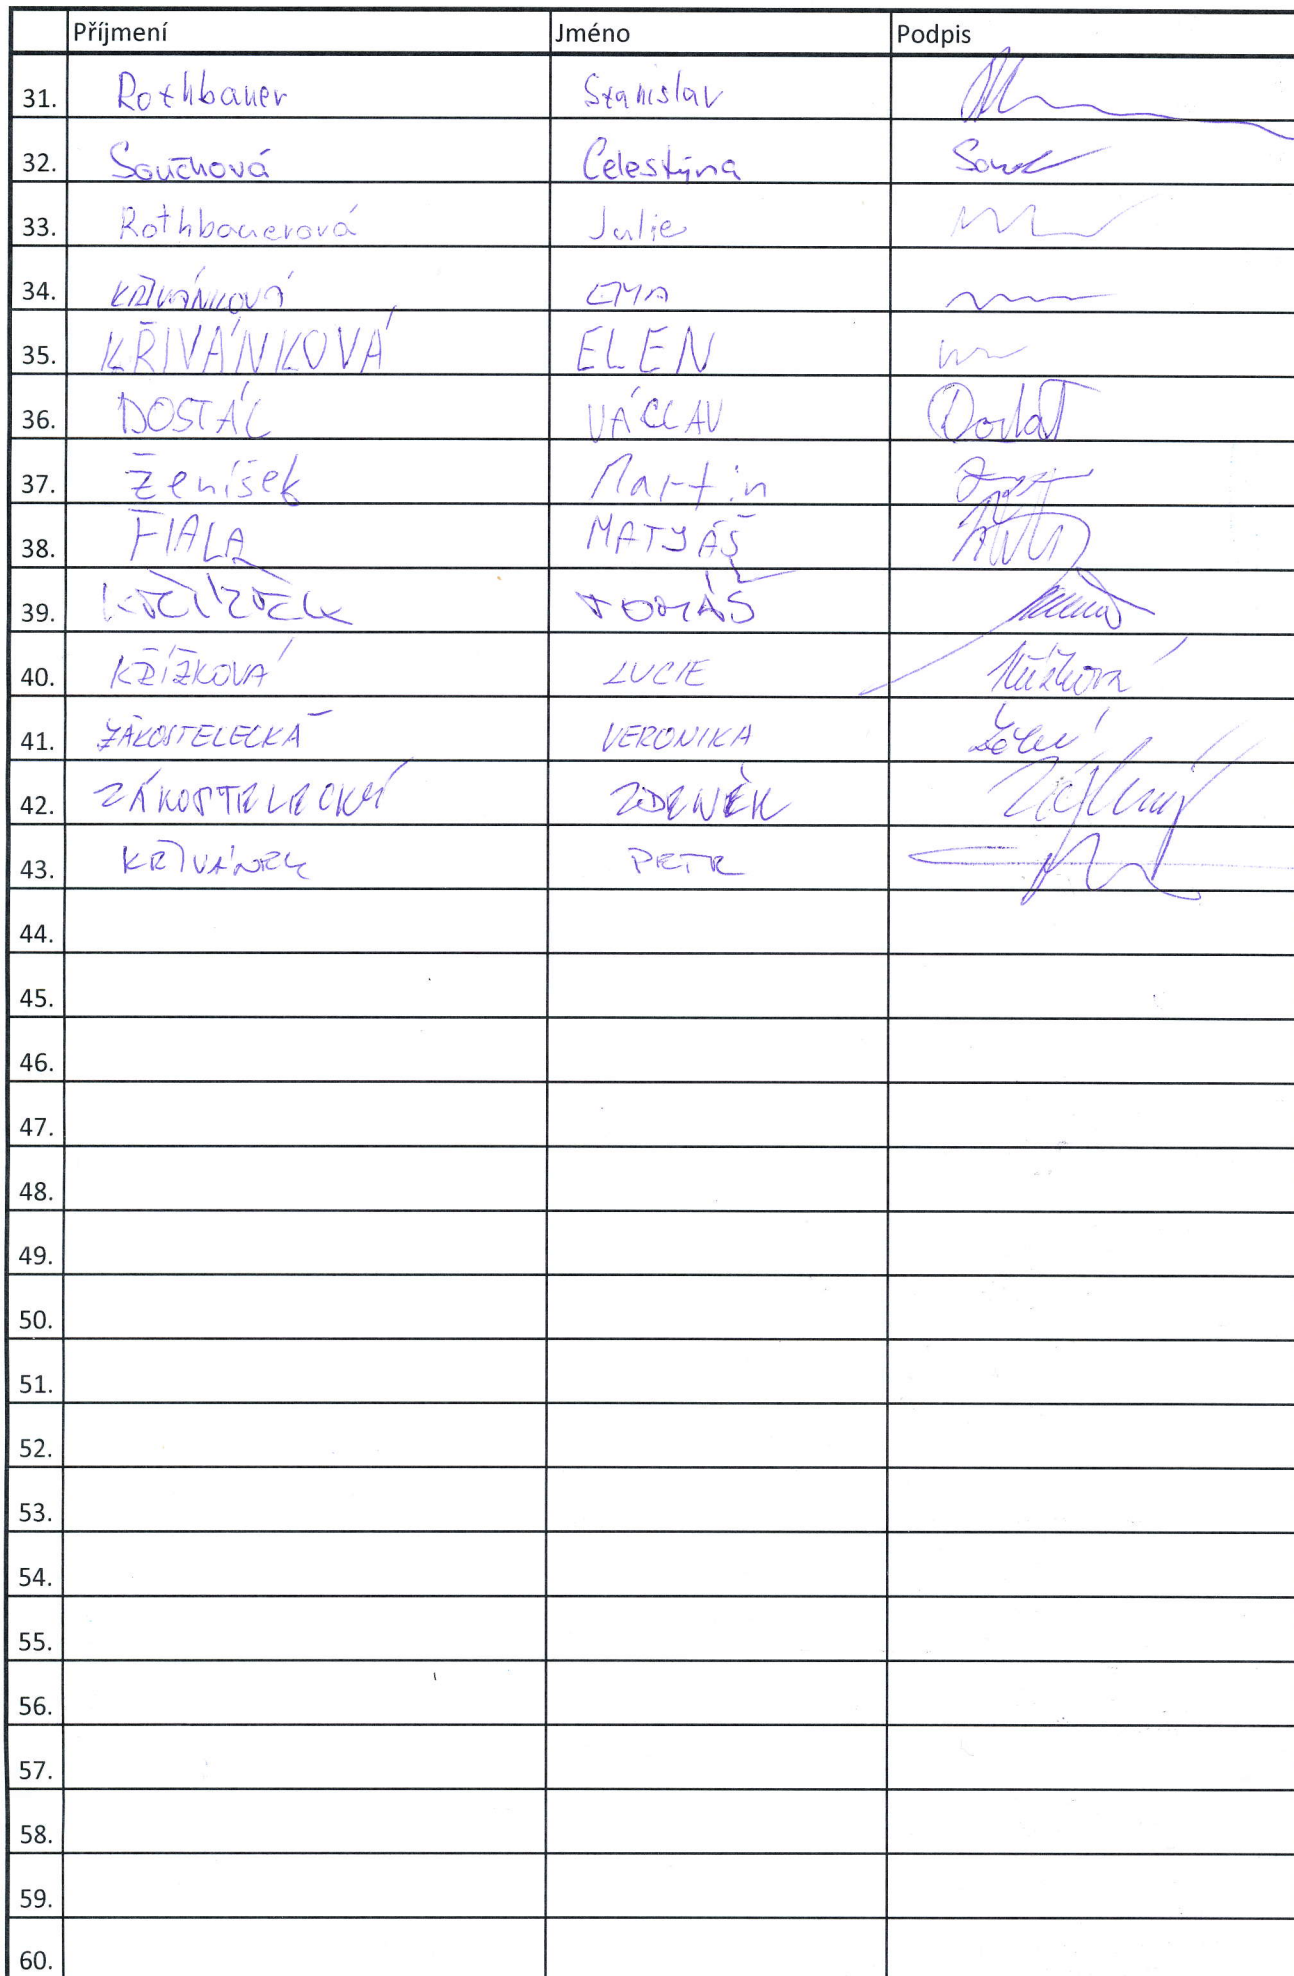 Příjmení Jméno Podpis
31. Rothbauer Stanislav
32. Součková Celestýna
33. Rothbauerová Julie
34. KŘIVÁNKOVÁ EMA
35. KŘIVÁNKOVÁ ELEN
36. DOSTÁL VÁCLAV
37. Ženíšek Martin
38. FIALA MATYÁŠ
39. TOMÁŠ
40. KŘÍŽKOVÁ LUCIE Křížková
41. ZÁKOSTELECKÁ VERONIKA
42. ZÁKOSTELECKÝ ZDENĚK
43. KŘIVÁNEK PETR
44.
45.
46.
47.
48.
49.
50.
51.
52.
53.
54.
55.
56.
57.
58.
59.
60.